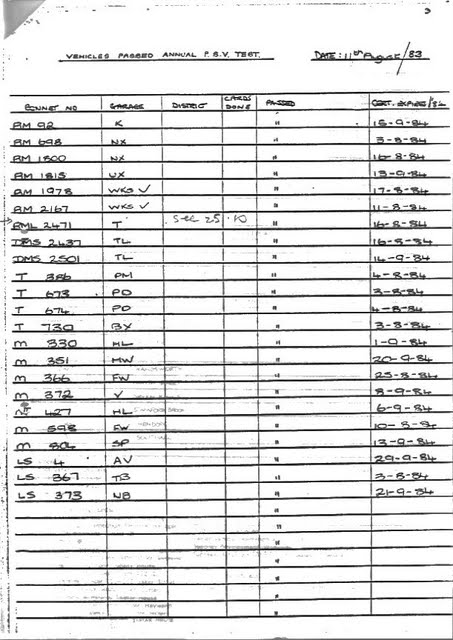 VEHICLES PASSED ANNUAL P.S.V. TEST. DATE: 11th August/83
BONNET NO GARAGE DISTRICT CARDS DONE PASSED CERT. EXPIRES/84
RM 92 K " 15-9-84
RM 698 NX " 3-8-84
RM 1800 NX " 16-8-84
RM 1815 UX " 13-9-84
RM 1978 WKS V " 17-8-84
RM 2167 WKS V " 11-8-84
RML 2471 T Sec 25 . 10 " 16-8-84
DMS 2437 TL " 16-8-84
DMS 2501 TL " 14-9-84
T 386 PM " 4-8-84
T 673 PD " 3-8-84
T 674 PD " 4-8-84
T 730 BX " 3-8-84
M 330 HL " 1-9-84
M 351 HW " 20-9-84
M 366 FW " 23-8-84
M 372 V " 8-9-84
M 427 HL " 6-9-84
M 598 FW " 10-8-84
M 804 SP " 13-9-84
LS 4 AV " 29-9-84
LS 367 TB " 3-8-84
LS 373 NB " 21-9-84
"
"
"
"
"
"
"